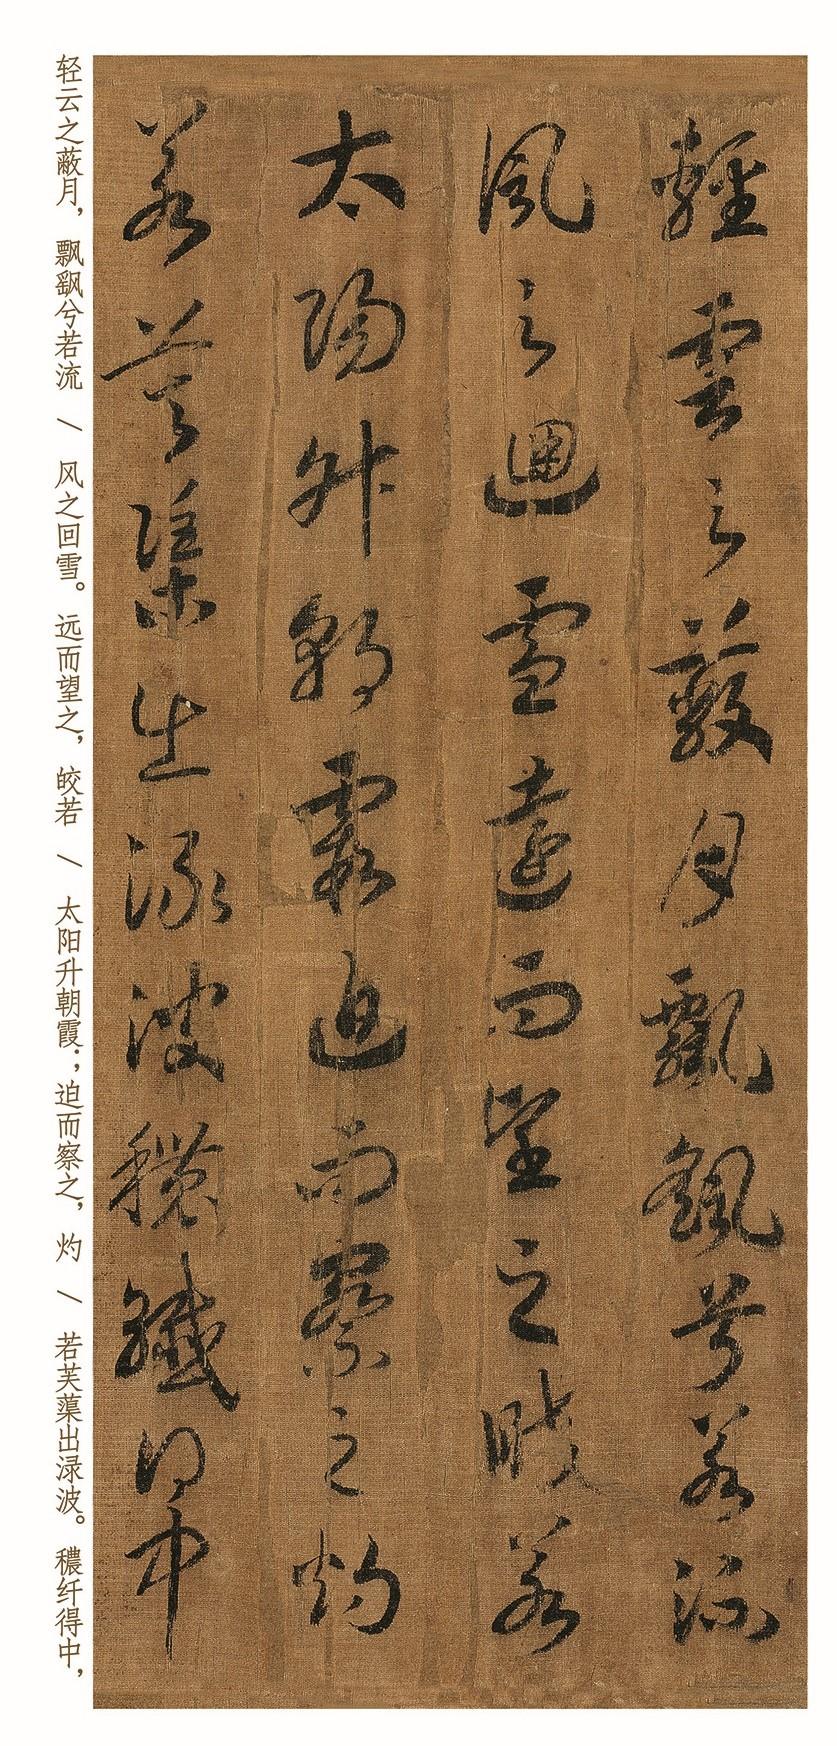 輕雲之蔽月飄飖兮若流
風之迴雪遠而望之皎若
太陽升朝霞迫而察之灼
若芙蕖出渌波穠纖得中
轻云之蔽月，飘飖兮若流 / 风之回雪。远而望之，皎若 / 太阳升朝霞；迫而察之，灼 / 若芙蕖出渌波。穠纤得中，